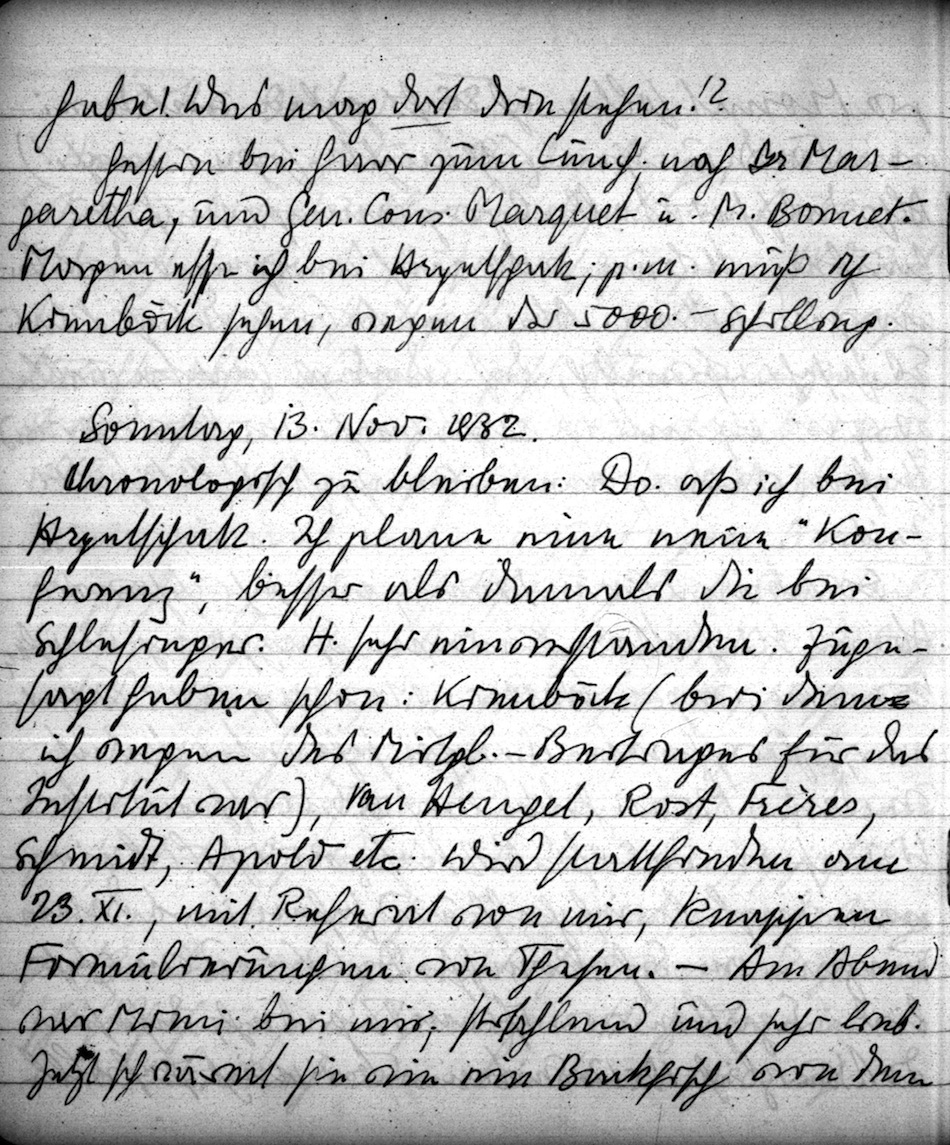 habe! Was mag dort drin stehen!?
Gestern bei Herrn zum Lunch; noch Dr Mar-
garetha, und Gen. Cons. Marquet u. M. Bonnet.
Morgen esse ich bei Hryntschak; p.m. muß ich
Kienböck sehen, wegen der 5000.– Schilling.
Sonntag, 13. Nov. 1932.
Chronologisch zu bleiben: Do. aß ich bei
Hryntschak. Ich plane eine neue "Kon-
ferenz", besser als damals die bei
Schlesinger. H. sehr einverstanden. Zuge-
sagt haben schon: Kienböck (bei dem
ich wegen des Mitgl.-Beitrages für das
Institut war), van Hengel, Rost, Frères,
Schmidt, Apold etc. Wird stattfinden am
23. XI., mit Referat von mir, knappen
Formulierungen von Thesen. – Am Abend
war Mimi bei mir; strahlend und sehr lieb.
Jetzt schwärmt sie wie ein Backfisch von dem